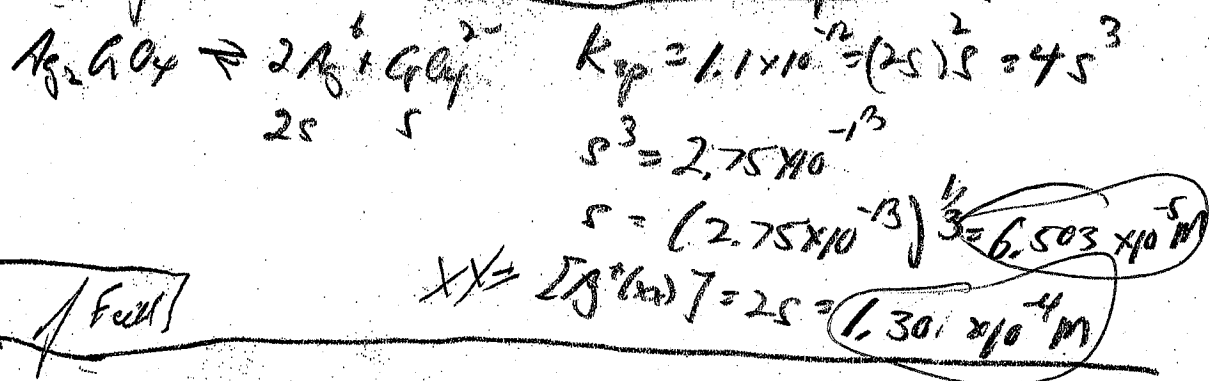 Ag₂CrO₄ ⇌ 2Ag⁺ + CrO₄²⁻ Ksp = 1.1×10⁻¹² = (2s)²s = 4s³
2s s
s³ = 2.75×10⁻¹³
s = (2.75×10⁻¹³)^1/3 = 6.503×10⁻⁵ M
= [Ag⁺] = 2s = 1.301 ×10⁻⁴ M